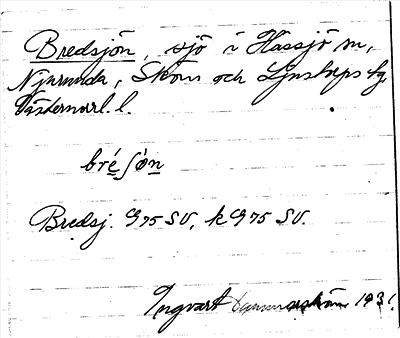 Bredsjön, sjö i Hässjö sn,
Njurunda, Sköns och Ljustorps tg
Västernorrl. l.
bréʃøn
Bredsj. G75 SV, k G75 SV.
Ingvart 1931.